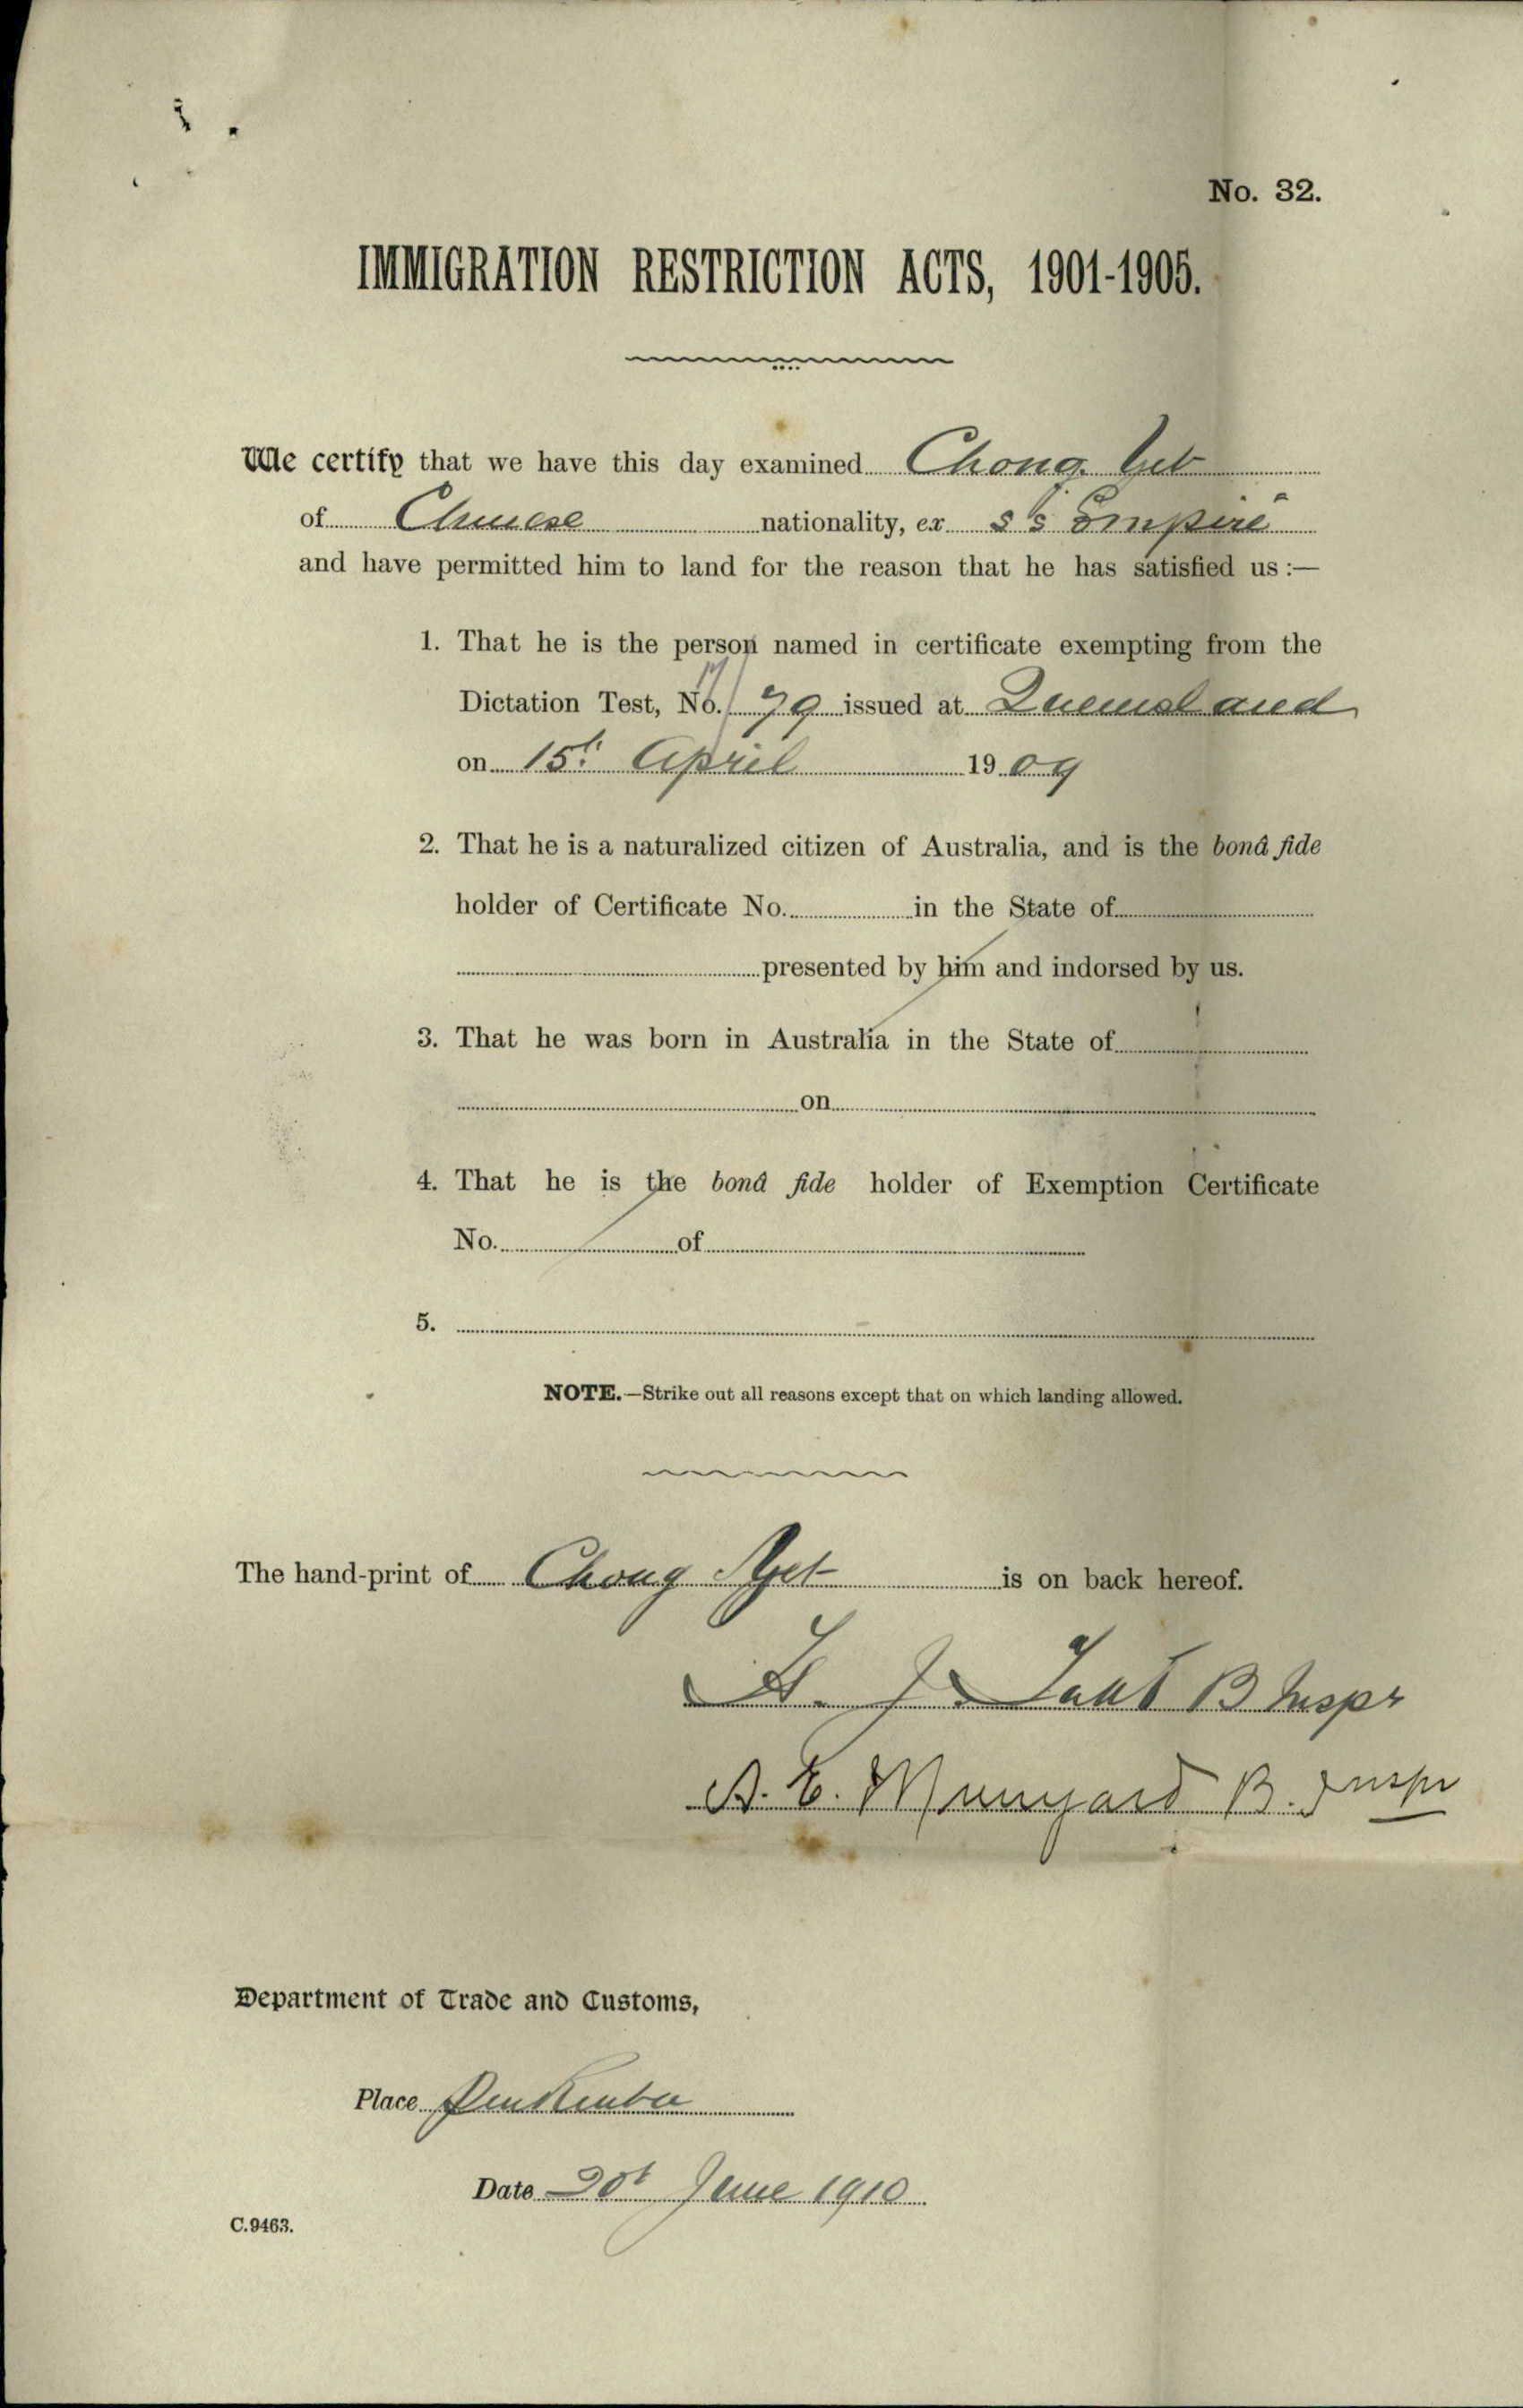 No. 32.
IMMIGRATION RESTRICTION ACTS, 1901-1905.
We certify that we have this day examined Chong Yet
of Chinese nationality, ex s s Empire
and have permitted him to land for the reason that he has satisfied us :—
1. That he is the person named in certificate exempting from the
Dictation Test, No. 79 issued at Queensland
on 15t April 1909
2. That he is a naturalized citizen of Australia, and is the bonâ fide
holder of Certificate No. in the State of
presented by him and indorsed by us.
3. That he was born in Australia in the State of
on
4. That he is the bonâ fide holder of Exemption Certificate
No. of
5.
NOTE.—Strike out all reasons except that on which landing allowed.
The hand-print of Chong Yet is on back hereof.
B Inspr
A. E. Munyard B. Inspr
Department of Trade and Customs,
Place Pinkenba
Date 20t June 1910
C.9463.